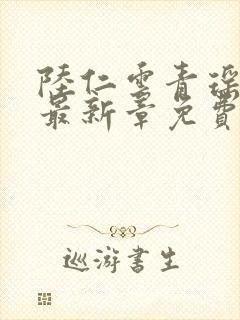 陸仁雲青瑶
最新章免費
巡游書生